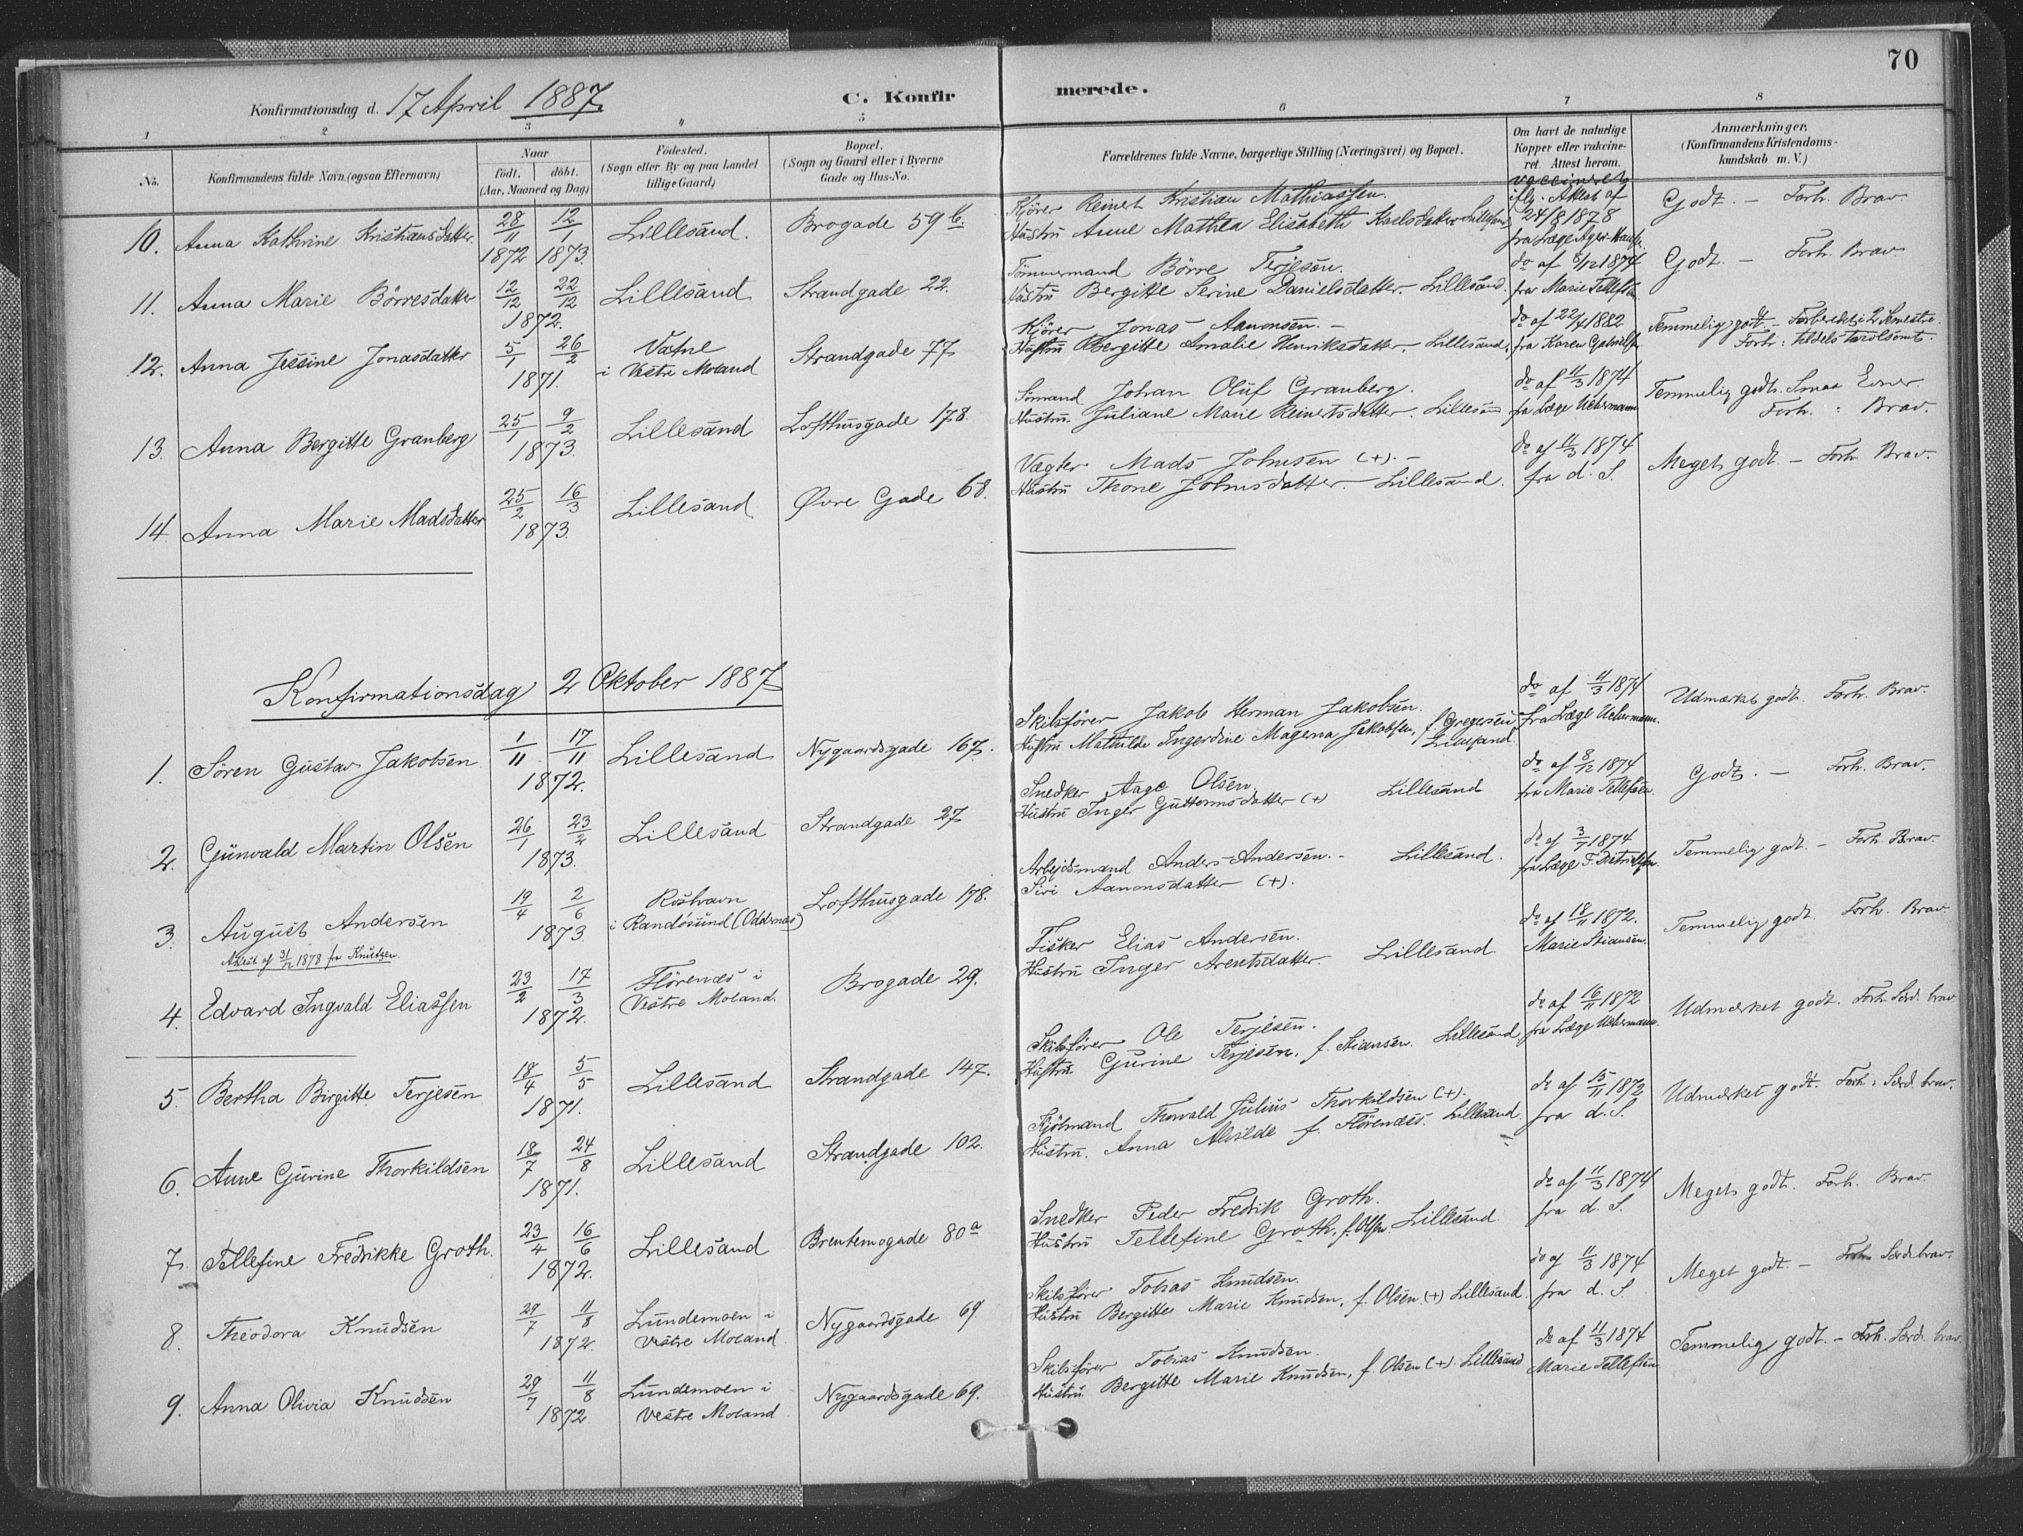 70
Konfirmationsdag d. 17 April 1887.
C. Konfirmerede.
1 2 3 4 5 6 7 8
No.
Konfirmandens fulde Navn (ogsaa Efternavn)
Naar
født. døbt.
(Aar, Maaned og Dag)
Fødested.
(Sogn eller By og paa Landet
tillige Gaard)
Bopæl.
(Sogn og Gaard eller i Byerne
Gade og Hus-No.
Forældrenes fulde Navne, borgerlige Stilling (Næringsvei) og Bopæl.
Om havt de naturlige
Kopper eller vakcineret.
Attest herom.
Anmærkninger.
(Konfirmandens Kristendomskundskab m. V.)
10. Anna Kathrine Kristiansdatter 28/11 1872 12/1 1873. Lillesand. Brogade 59 b.
Kjører Reinert Kristian Mathiassen.
Hustru Anne Mathea Elisabeth Karlsdatter Lillesand
vaccineret
iflg. Attest af
24/8 1878
fra Læge
Godt. – Forh. Brav.
11. Anna Marie Börresdatter 12/12 22/12 1872. Lillesand Strandgade 22.
Tömmermand Börre Terjesen.
Hustru Bergitte Serine Danielsdatter. Lillesand.
do af 8/12 1874
fra Marie Tellefsen
Godt. – Forh. Brav.
12. Anna Jessine Jonasdatter 5/1 26/2 1871. i Vestre Moland Strandgade 77
Kjører Jonas Aanonsen. –
Hustru Bergitte Amalie Henriksdatter. Lillesand.
do af 22/4 1882
fra Karen
Temmelig godt – Forberedt i 2 Semestre.
Forh: tildels
13. Anna Bergitte Granberg 25/1 9/2 1873. Lillesand Lofthusgade 178.
Sömand Johan Oluf Granberg.
Hustru. Juliane Marie Reinertsdatter. Lillesand
do af 11/3 1874
fra Læge Uchermann
Temmelig godt. Smaa Evner.
Forh: Brav.
14 Anna Marie Madsdatter 25/2 16/3 1873. Lillesand Øvre Gade 68.
Vægter Mads Johnsen (+). –
Hustru Thone Johnsdatter – Lillesand.
do af 11/3 1874
fra d. S.
Meget godt – Forh Brav.
Konfirmationsdag 2 Oktober 1887
1. Sören Gustav Jakobsen 1/11 17/11 1872. Lillesand Nygaardsgade 167.
Skibsförer Jakob Herman Jakobsen.
Hustru Mathilde Ingerdine Magena Jakobsen, f. Gregersen
Lillesand
do af 11/3 1874
fra Læge Uchermann.
Udmærket godt. Forh. Brav.
2. Gunvald Martin Olsen 26/1 23/2 1873. Lillesand Strandgade 27
Snedker Aage Olsen.
Hustru Inger Guttormsdatter (+) Lillesand
do af 8/12 1874
fra Marie Tellefsen.
Godt. – Forh. Brav.
3. August Andersen 19/4 2/6 1873 i Randösund (Oddernæs) Lofthusgade 178.
Attest af 31/12 1878 fra Knutzen.
Arbejdsmand Anders Andersen. – Lillesand.
Siri Aanonsdatter (+).
do af 3/7 1874
fra Læge
Temmelig godt. – Forh. Brav.
4. Edvard Ingvald Eliassen 23/2 17/3 1872. Flörenæs i
Vestre Moland. Brogade 29.
Fisker Elias Andersen.
Hustru Inger Arentsdatter. Lillesand
do af 18/11 1872.
Marie Stiansen.
Temmelig godt. Forh. Brav
5. Bertha Birgitte Terjesen 18/4 5/5 1871. Lillesand Strandgade 147.
Skibsförer Ole Terjesen.
Hustru. Gurine Terjesen, f. Stiansen. Lillesand
do af 16/11 1872
fra Læge Uchermann.
Udmærket godt. Forh. Særd. brav
6. Anne Gurine Thorkildsen 18/7 24/8 1871. Lillesand Strandgade 102.
Kjöbmand Thorvald Julius Thorkildsen (+).
Hustru. Anna Alvilde f. Flörenæs. Lillesand
do af 15/11 1872
fra d. S.
Udmærket godt. Forh. Særd. brav.
7. Tellefine Fredrikke Groth. 23/4 16/6 1872. Lillesand Brentemogade 80 a
Snedker Peder Fredrik Groth.
Hustru Tellefine Groth, f. Olsen. Lillesand
do af 11/3 1874
fra d. S.
Meget godt. Forh. Brav.
8. Theodora Knudsen 29/7 11/8 1872. Lundemoen i
Vestre Moland Nygaardsgade 69
Skibsförer Tobias Knudsen.
Hustru Bergitte Marie Knudsen, f. Olsen (+) Lillesand.
do af 11/3 1874
fra d. S
Meget godt. – Forh Særd. brav.
9. Anna Olivia Knudsen 29/7 11/8 1872. Lundemoen i
Vestre Moland. Nygaardsgade 69.
Skibsförer Tobias Knudsen.
Hustru Bergitte Marie Knudsen, f. Olsen (+). Lillesand
do af 11/3 1874
Marie Tellefsen
Temmelig godt. – Forh. Særd. brav